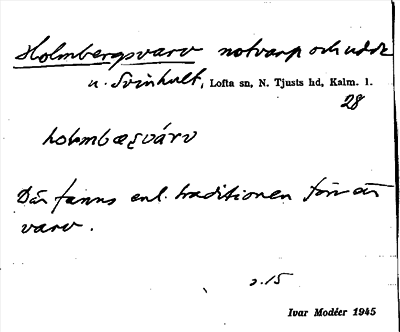 Holmbergsvarv notvarp och udde
u. Svinhult, Lofta sn, N. Tjusts hd, Kalm. l.
28
holmbærsvárv
Där fanns enl. traditionen förr ett
varv.
s. 15
Ivar Modéer 1945